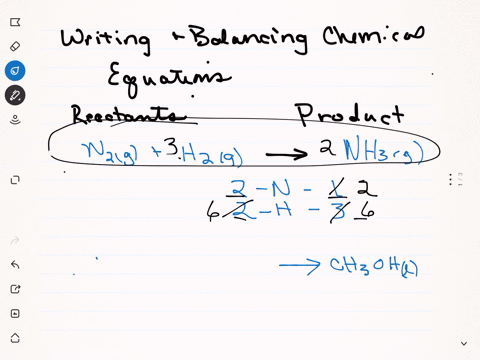 Writing + Balancing Chemical
Equations
Reactants Product
N2(g) + 3 H2(g) → 2 NH3(g)
2 - N - 1 2
6 2 - H - 3 6
→ CH3OH(l)
1/3